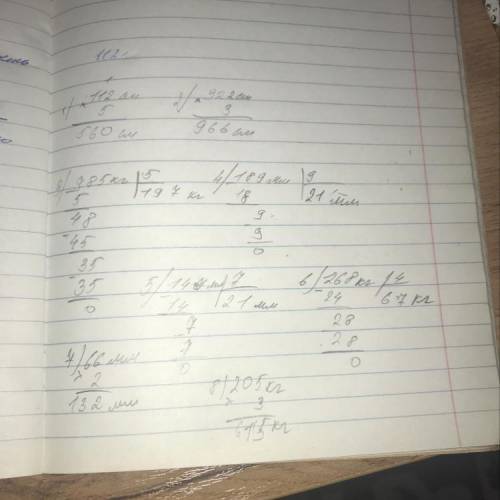 112
1
1) × 112 см
5
560 см
2) × 322 см
3
966 см
985 кг | 5
5 197 кг
48
45
35
35
0
4) 189 мм | 9
18 21 мм
9
9
0
5) 147 мм | 7
14 21 мм
7
7
0
6) 268 кг | 4
24 67 кг
28
28
0
7) 66 мм
× 2
132 мм
8) 205 кг
× 3
615 кг